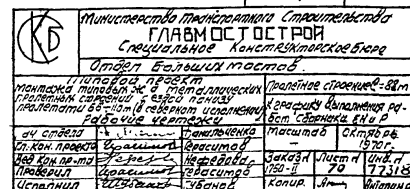 СКБ
Министерство Транспортного Строительства
ГЛАВМОСТОСТРОЙ
Специальное Конструкторское Бюро
Отдел Больших мостов.
Типовой проект
монтажа типовых ж д металлических
пролетных строений с ездой понизу
пролетами 55-110м (в северном исполнении)
Рабочие чертежи
Пролетное строение l=88м
К графику выполнения ра-
бот Сборника ЕН и Р
нач отдела Данильченко Масштаб Октябрь
1970г.
Гл. кон. проекта Герасимов Герасимов
Вед кон пр-та Нефедова Заказ Лист Инв.
Проверил Герасимов Герасимов 1750-II 79 77318
Исполнил Губанов Копир.